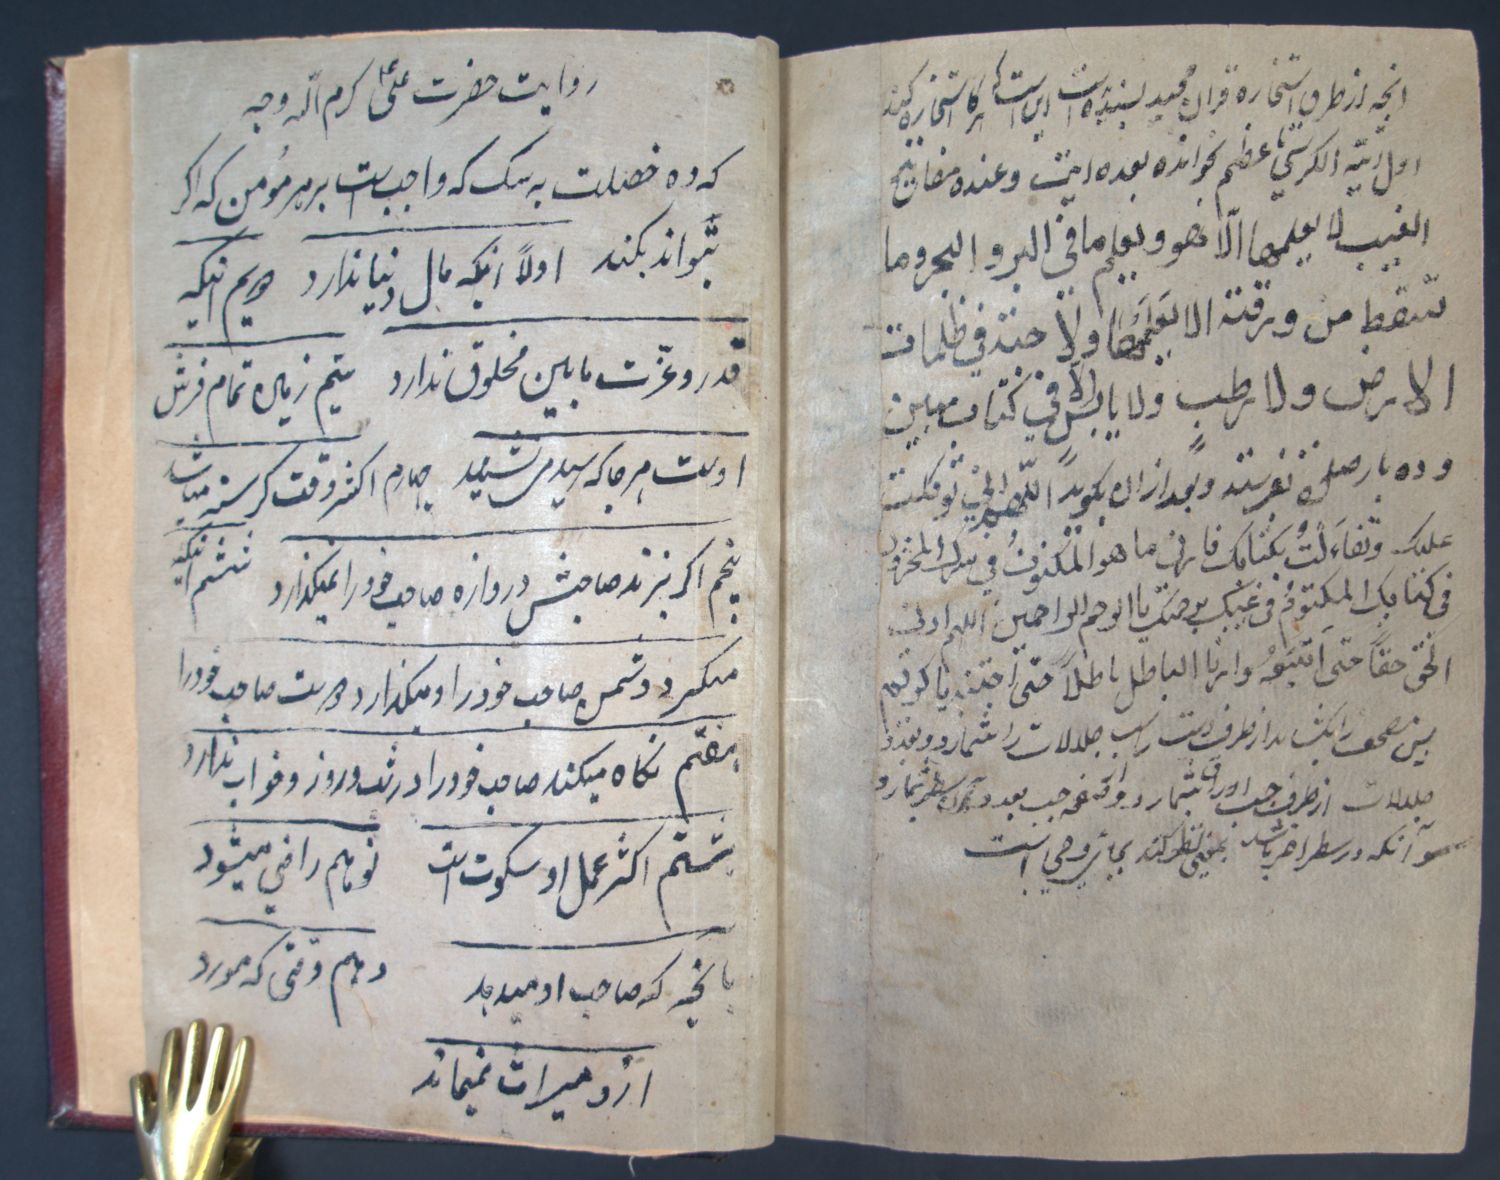 انچه از طرق استخاره قران مجید پسندیده است این است که هرکا استخاره کند
اول آیة الکرسی تا عظیم بخوانده بعده آیت وعنده مفاتیح
الغیب لا یعلمها الّا هو ویعلم ما فی البر و البحر وما
تسقط من ورقة الا یعلمها ولا حبة فی ظلمات
الارض ولا رطب ولا یابس الا فی کتاب مبین
و ده بار صلوة بفرستد و بعد ازان بگوید اللّهم انی توکلت
علیک وتفاءلت بکتابک فارنی ما هو المکنون فی سرک المخزون
فی کتابک المکتوم فی غیبک برحمتک یا ارحم الراحمین اللهم ارنی
الحق حقاً حتی اتبعه وارنا الباطل باطلاً حتی اجتنبه یا کریم
پس مصحف را بکشاید از طرف راست جلالات را بشمارد و بعدد
جلالات از طرف چپ اوراق بشمارد و از صفحه چپ بعدد سطر بشمارد
آنکه در سطر اخر باشد نظر کند بجای وحی است
روایت حضرت علی کرم الله وجه
که ده خصلت به سک که واجب است بر هر مُومن که اکر
بتواند بکند اولاً انیکه مال دنیا ندارد دویم انیکه
قدر و عزّت ما بین مخلوق ندارد سیّم زمین تمام فرش
اوست هر جا که رسید می نشیند چهارم اکثر وقت کرسنه میباشد
پنجم اکر بزند صاحبش دروازه صاحب خود را نمیکذارد ششم انیکه
میکیرد دشمن صاحب خود را و میکذارد دوست صاحب خود را
هفتم نکاه میکند صاحب خود را در شب و روز و خواب ندارد
هشتم اکثر عمل او سکوت است نوهم راضی میشود
بانچه که صاحب او میدهد دهم وقتی که مورد
ازو میراث نمیماند